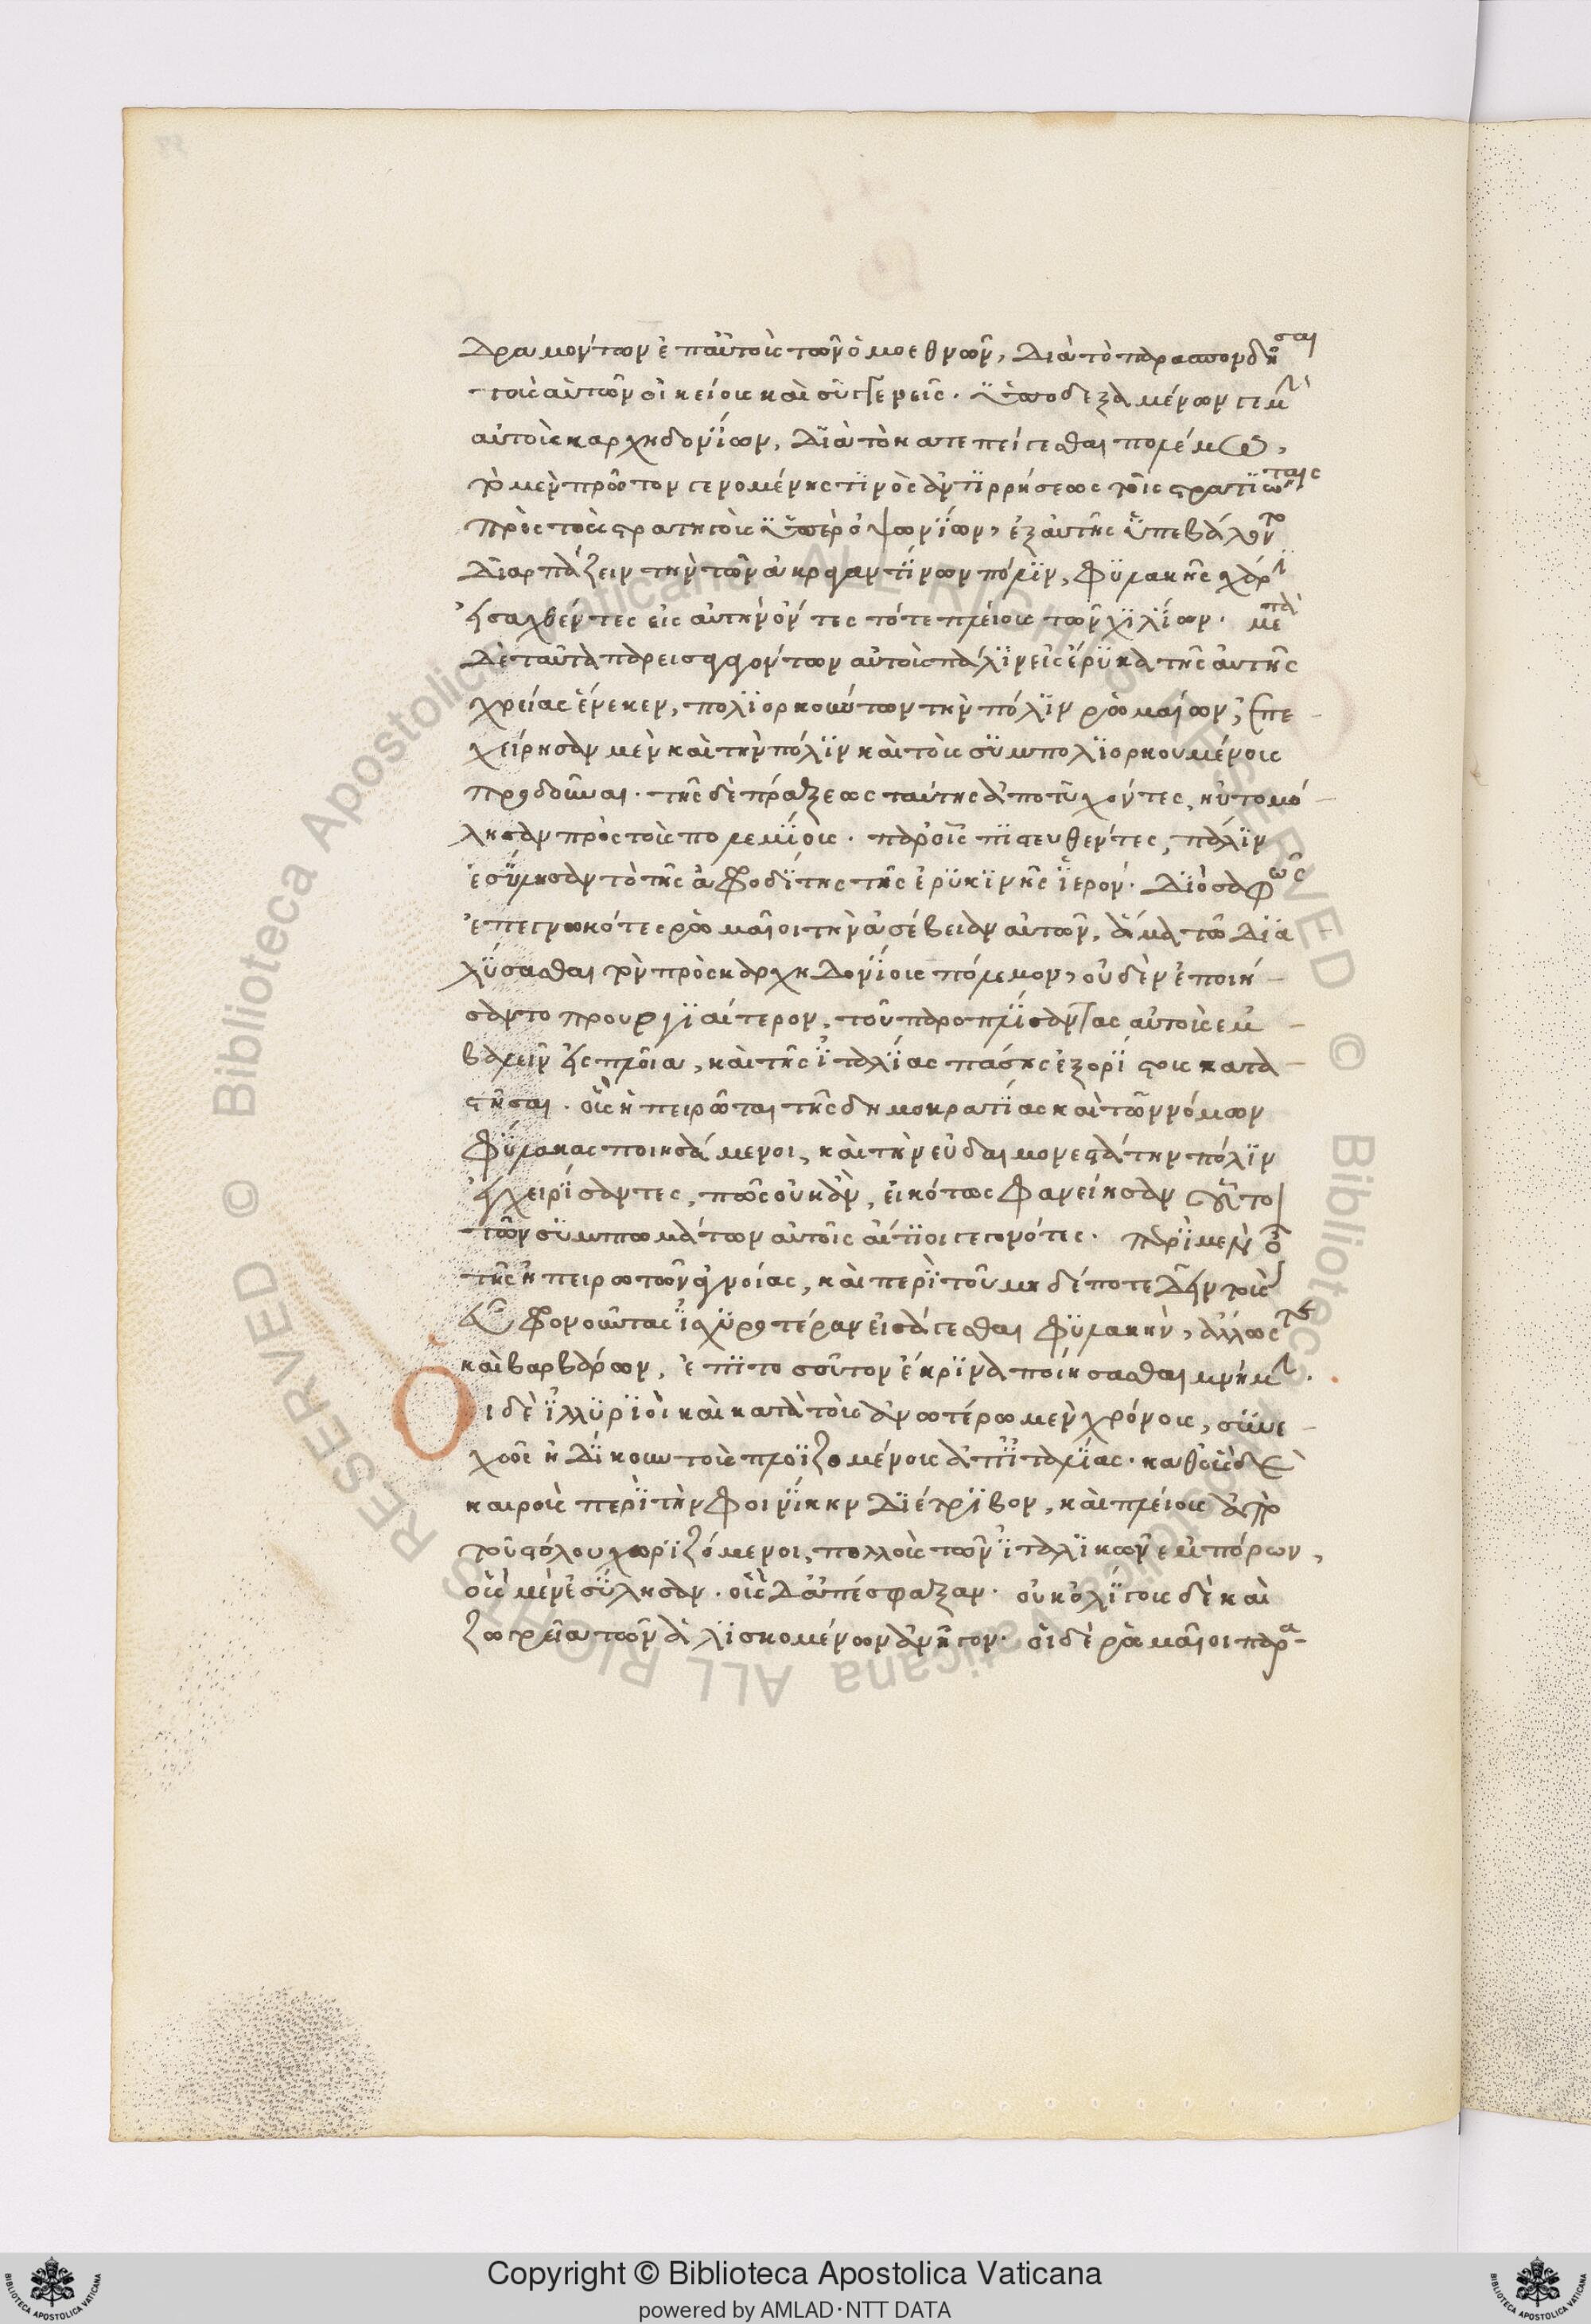 δραμόντων ἐπ' αὐτοὺς τῶν ὁμοεθνῶν, διὰ τὸ παρασπονδῆσαι
τοὺς αὐτῶν οἰκείους καὶ συγγενεῖς. ὑποδεξαμένων
αὐτοὺς καρχηδονίων, διὰ τὸ κατεπείγεσθαι πολέμοις,
τὸ μὲν πρῶτον γενομένης τινὸς ἀντιρρήσεως τοῖς στρατιώταις
πρὸς τοὺς στρατηγοὺς ὑπὲρ ὀψωνίων, ἐξ αὐτῆς ὑπεβάλοντο
διαρπάζειν τὴν τῶν ἀκραγαντίνων πόλιν, φυλακῆς χάριν
εἰσαχθέντες εἰς αὐτὴν ὄντες τότε πλείους τῶν χιλίων. μετὰ
δὲ ταῦτα παρεισαγαγόντων αὐτοὺς πάλιν εἰς ἔρυκα τῆς αὐτῆς
χρείας ἕνεκεν, πολιορκούντων τὴν πόλιν ῥωμαίων, ἐπε
χείρησαν μὲν καὶ τὴν πόλιν καὶ τοὺς συμπολιορκουμένους
προδοῦναι. τῆς δὲ πράξεως ταύτης ἀποτυχόντες, ηὐτομό
λησαν πρὸς τοὺς πολεμίους. παρ' οἷς πιστευθέντες, πάλιν
ἐσύλησαν τὸ τῆς ἀφροδίτης τῆς ἐρυκίνης ἱερόν. διὸ σαφῶς
ἐπεγνωκότες ῥωμαῖοι τὴν ἀσέβειαν αὐτῶν, ἅμα τῶ δια
λύσασθαι τὸν πρὸς καρχηδονίους πόλεμον, οὐδὲν ἐποιή
σαντο προυργιαίτερον, τοῦ παροπλίσαντας αὐτοὺς ἐμ
βαλεῖν εἰς πλοῖα, καὶ τῆς ἰταλίας πάσης ἐξορίστους κατα
στῆσαι. οὓς ἠπειρῶται τῆς δημοκρατίας καὶ τῶν νόμων
φύλακας ποιησάμενοι, καὶ τὴν εὐδαιμονεστάτην πόλιν
ἐγχειρίσαντες, πῶς οὐκ ἂν, εἰκότως φανείησαν αὑτοῖς
τῶν συμπτωμάτων αὐτοῖς αἴτιοι γεγονότες. περὶ μὲν οὖν
τῆς ἠπειρωτῶν ἀγνοίας, καὶ περὶ τοῦ μηδέποτε δεῖν τοὺς
εὖ φρονοῦντας ἰσχυροτέραν εἰσάγεσθαι φυλακὴν, ἄλλως τε
καὶ βαρβάρων, ἐπὶ τοσοῦτον ἔκρινα ποιήσασθαι μνήμην.
Οἱ δὲ ἰλλυριοὶ καὶ κατὰ τοὺς ἀνωτέρω μὲν χρόνους, συνε
χῶς ἠδίκουν τοὺς πλοϊζομένους ἀπ' ἰταλίας. καθ' οὓς δὲ
καιροὺς περὶ τὴν φοινίκην διέτριβον, καὶ πλείους ἀπὸ
τοῦ στόλου χωριζόμενοι, πολλοὺς τῶν ἰταλικῶν ἐμπόρων,
οὓς μὲν ἐσύλησαν. οὓς δ' ἀπέσφαξαν. οὐκ ὀλίγους δὲ καὶ
ζωγρεία τῶν ἁλισκομένων ἀνῆγον. οἱ δὲ ῥωμαῖοι παρα
Copyright © Biblioteca Apostolica Vaticana
powered by AMLAD·NTT DATA